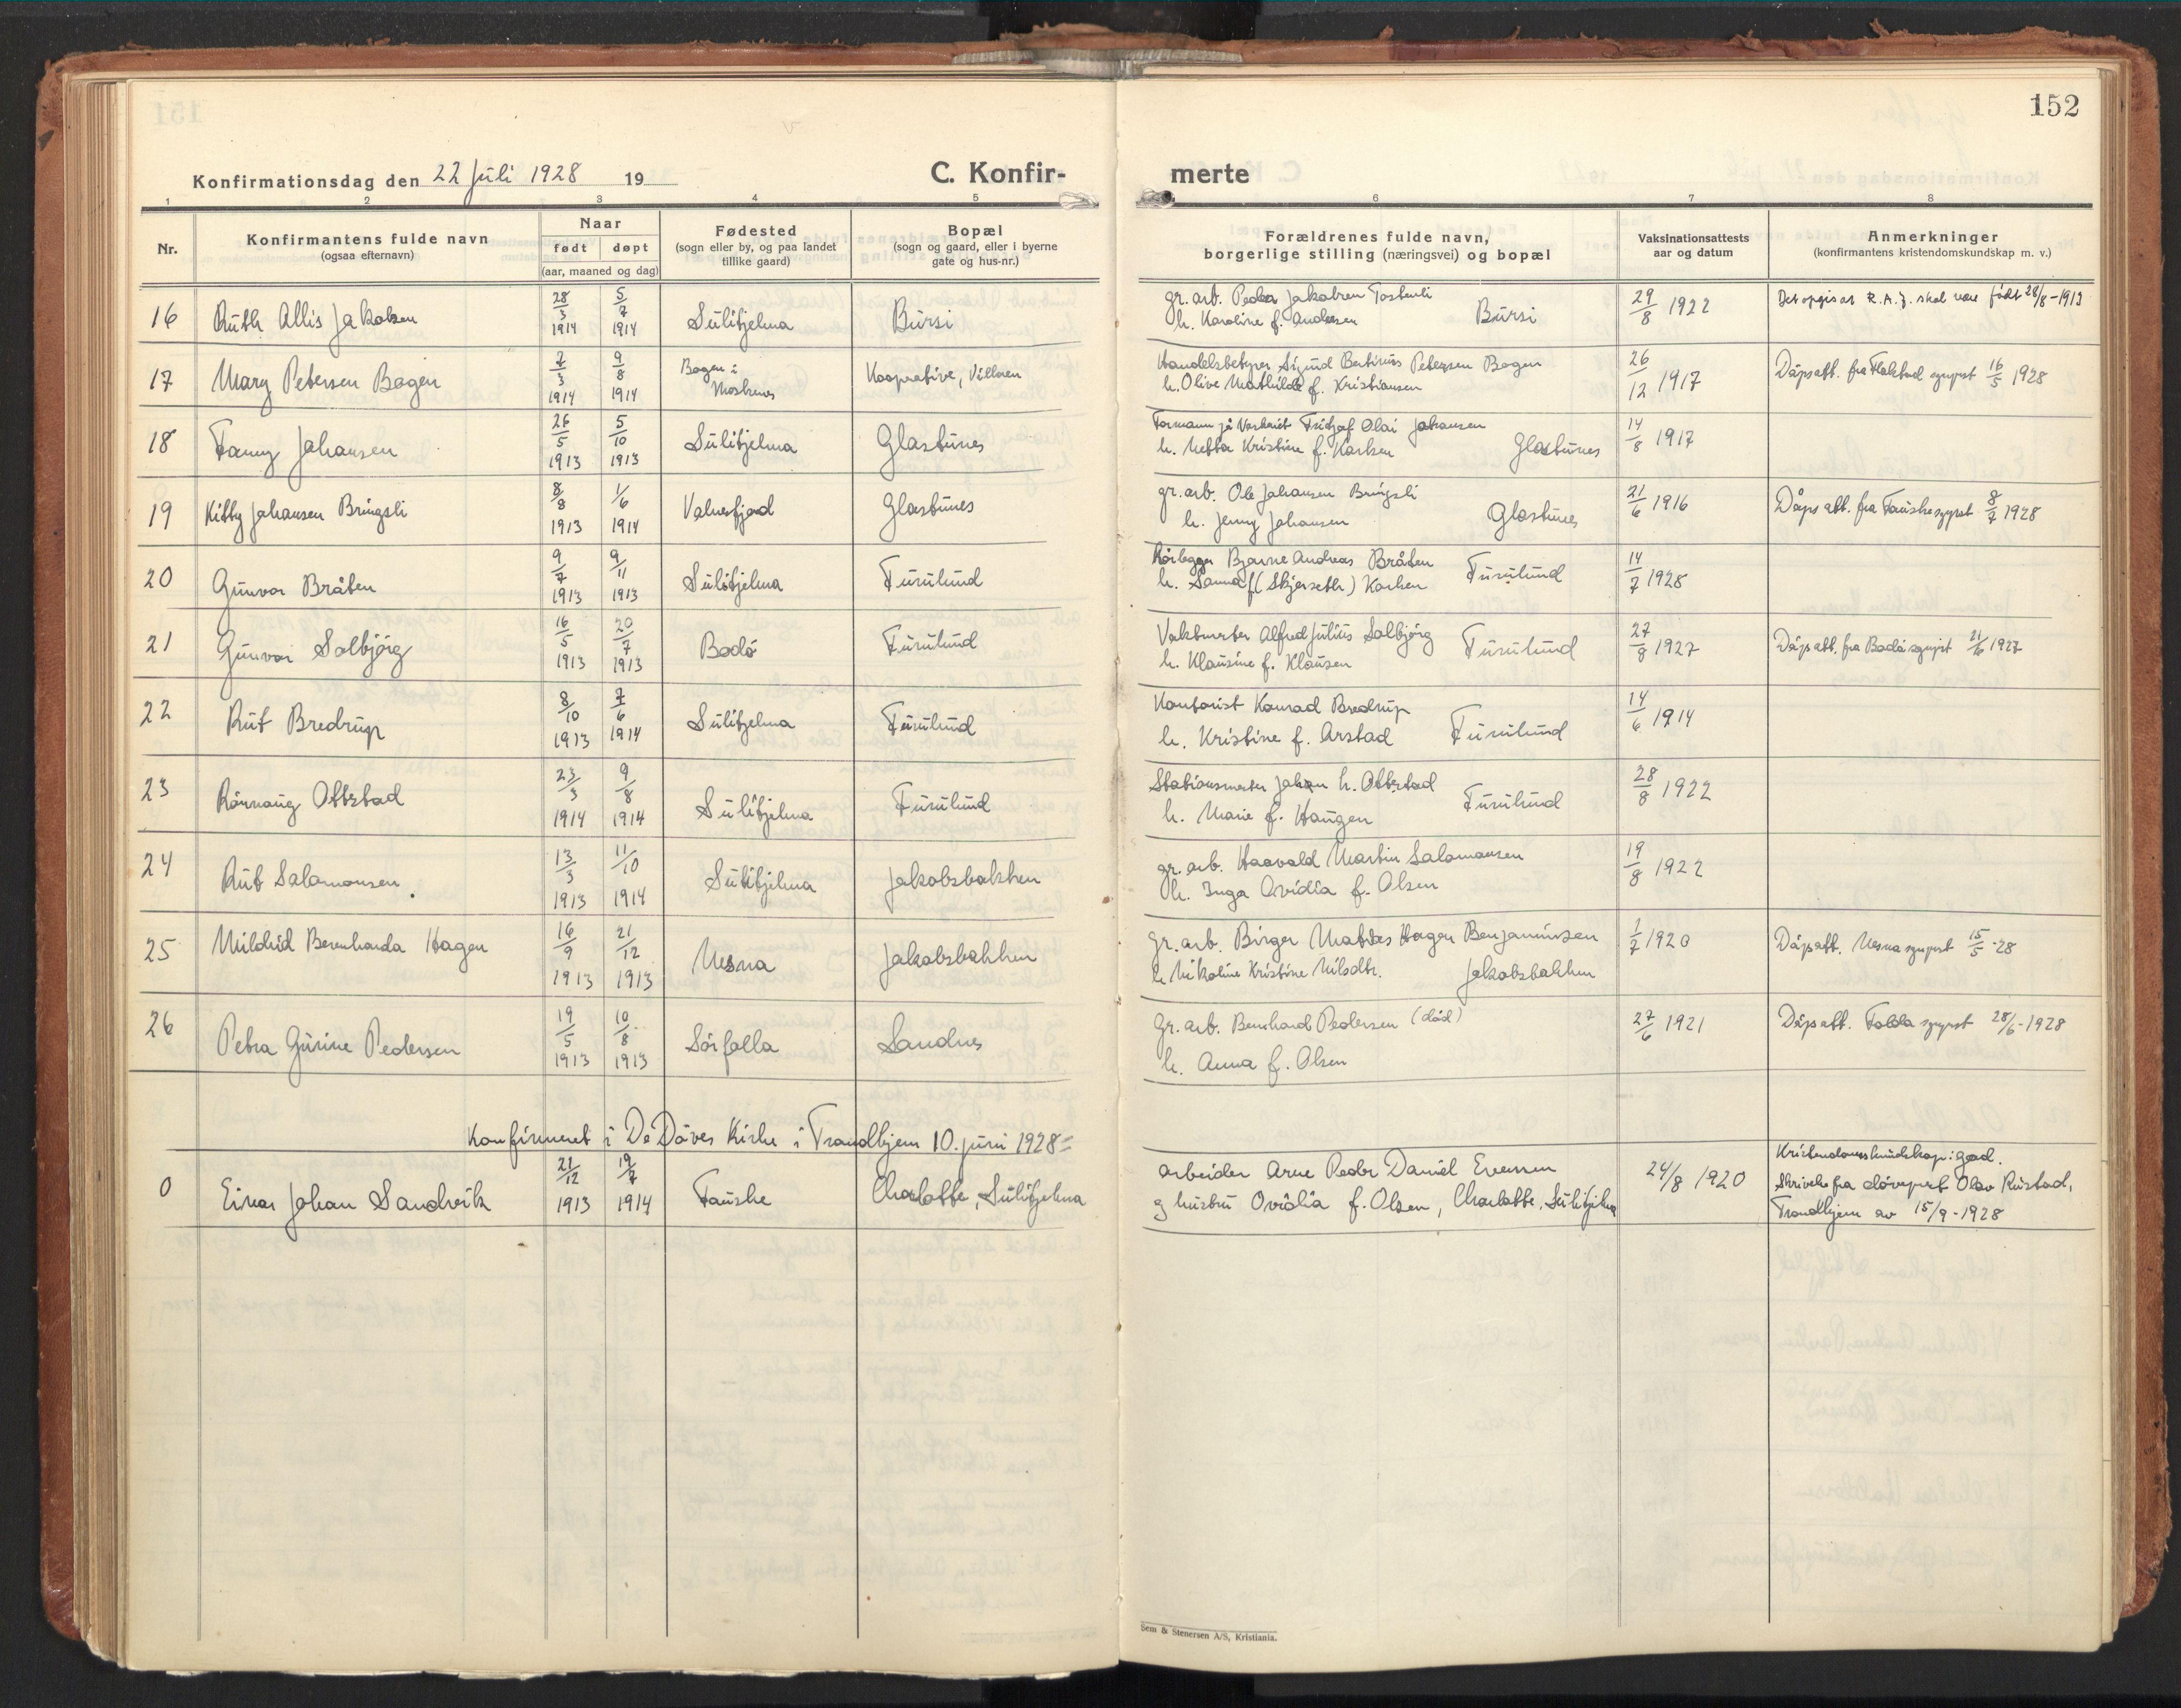 152
Konfirmationsdag den 22 Juli 1928 19
C. Konfir-
merte
1 2 3 4 5 6 7 8
Nr.
Konfirmantens fulde navn
(ogsaa efternavn)
Naar
født døpt
(aar, maaned og dag)
Fødested
(sogn eller by, og paa landet
tillike gaard)
Bopæl
(sogn og gaard, eller i byerne
gate og hus-nr.)
Forældrenes fulde navn,
borgerlige stilling (næringsvei) og bopæl
Vaksinationsattests
aar og datum
Anmerkninger
(konfirmantens kristendomskundskap m. v.)
16 Ruth Allis Jakobsen 28/3 1914 5/7 1914 Sulitjelma Bursi
gr. arb. Peder Jakobsen
h. Karoline f. Andersen Bursi
29/8 1922
Det opgis at R. A. J. skal være født 28/8-1913
17 Mary Petersen Bogen 7/3 1914 9/8 1914 Bogen i
Moskenes
Kooperative, Villaen
Handelsbetyrer Sigurd Bertinus Petersen Bogen
h. Olive Mathilde f. Kristiansen
26/12 1917
Dåpsatt. fra Flakstad sgnprst 16/5 1928
18 Fanny Johansen 26/5 1913 5/10 1913 Sulitjelma Glastunes
Formann på Verkstedt Fridtjof Olai Johansen
h. Netta Kristine f. Karlsen Glastunes
14/8 1917
19 Kitty Johansen Bringsli 8/8 1913 1/6 1914 Valnesfjord Glastunes
gr. arb. Ole Johansen Bringsli
h. Jenny Johansen Glastunes
21/6 1916
Dåps att. fra Fauske sgprst 8/7 1928
20 Gunvor Bråten 9/7 1913 9/11 1913 Sulitjelma Furulund
Rörlegger Bjarne Andreas Bråten
h. Sanna f (Skjerseth) Karlsen Furulund
14/7 1928
21 Gunvor Solbjörg 16/5 1913 20/7 1913 Bodö Furulund
Vaktmester Alfred Julius Solbjörg
h. Klausine f. Klausen Furulund
27/8 1927
Dåpsatt. fra Bodö sgnprst 21/6 1927
22 Rut Bredrup 8/10 1913 7/6 1914 Sulitjelma Furulund
Kontorist Konrad Bredrup
h. Kristine f. Arstad Furulund
14/6 1914
23 Rönnaug Ottestad 23/3 1914 9/8 1914 Sulitjelma Furulund
Stationsmester Johan h. Ottestad
h. Marie f. Haugen Furulund
28/8 1922
24 Rut Salomonsen. 13/3 1913 11/10 1914 Sulitjelma Jakobsbakken
gr. arb. Haavald Martin Salomonsen
h. Inga Ovidia f. Olsen
19/8 1922
25 Mildrid Bernharda Hagen 16/9 1913 21/12 1913 Nesna Jakobsbakken
gr. arb. Birger Matias Hagen Benjaminsen
h. Nikoline Kristine Nilsdtr. Jakobsbakken
1/7 1920
Dåpsatt. Nesna sgnprst 15/5-28
26 Petra Gurine Pedersen 19/5 1913 10/8 1913 Sörfolla Sandnes
gr. arb. Bernhard Pedersen (död)
h. Anna f. Olsen
27/6 1921
Dåpsatt. Folda sgnprst 28/6-1928
Konfirmeret i De Döves Kirke i Trondhjem 10. juni 1928=
0 Einar Johan Sandvik 21/12 1913 19/7 1914 Fauske Charlotte, Sulitjelma
arbeider Arne Peder Daniel Evensen
g hustru Ovidia f. Olsen, Charlotte, Sulitjelma
24/8 1920
Kristendomskundskap: god.
Skrivelse fra döveprest Olav Rustad,
Trondhjem av 15/9-1928
Sem & Stenersen A/S, Kristiania.